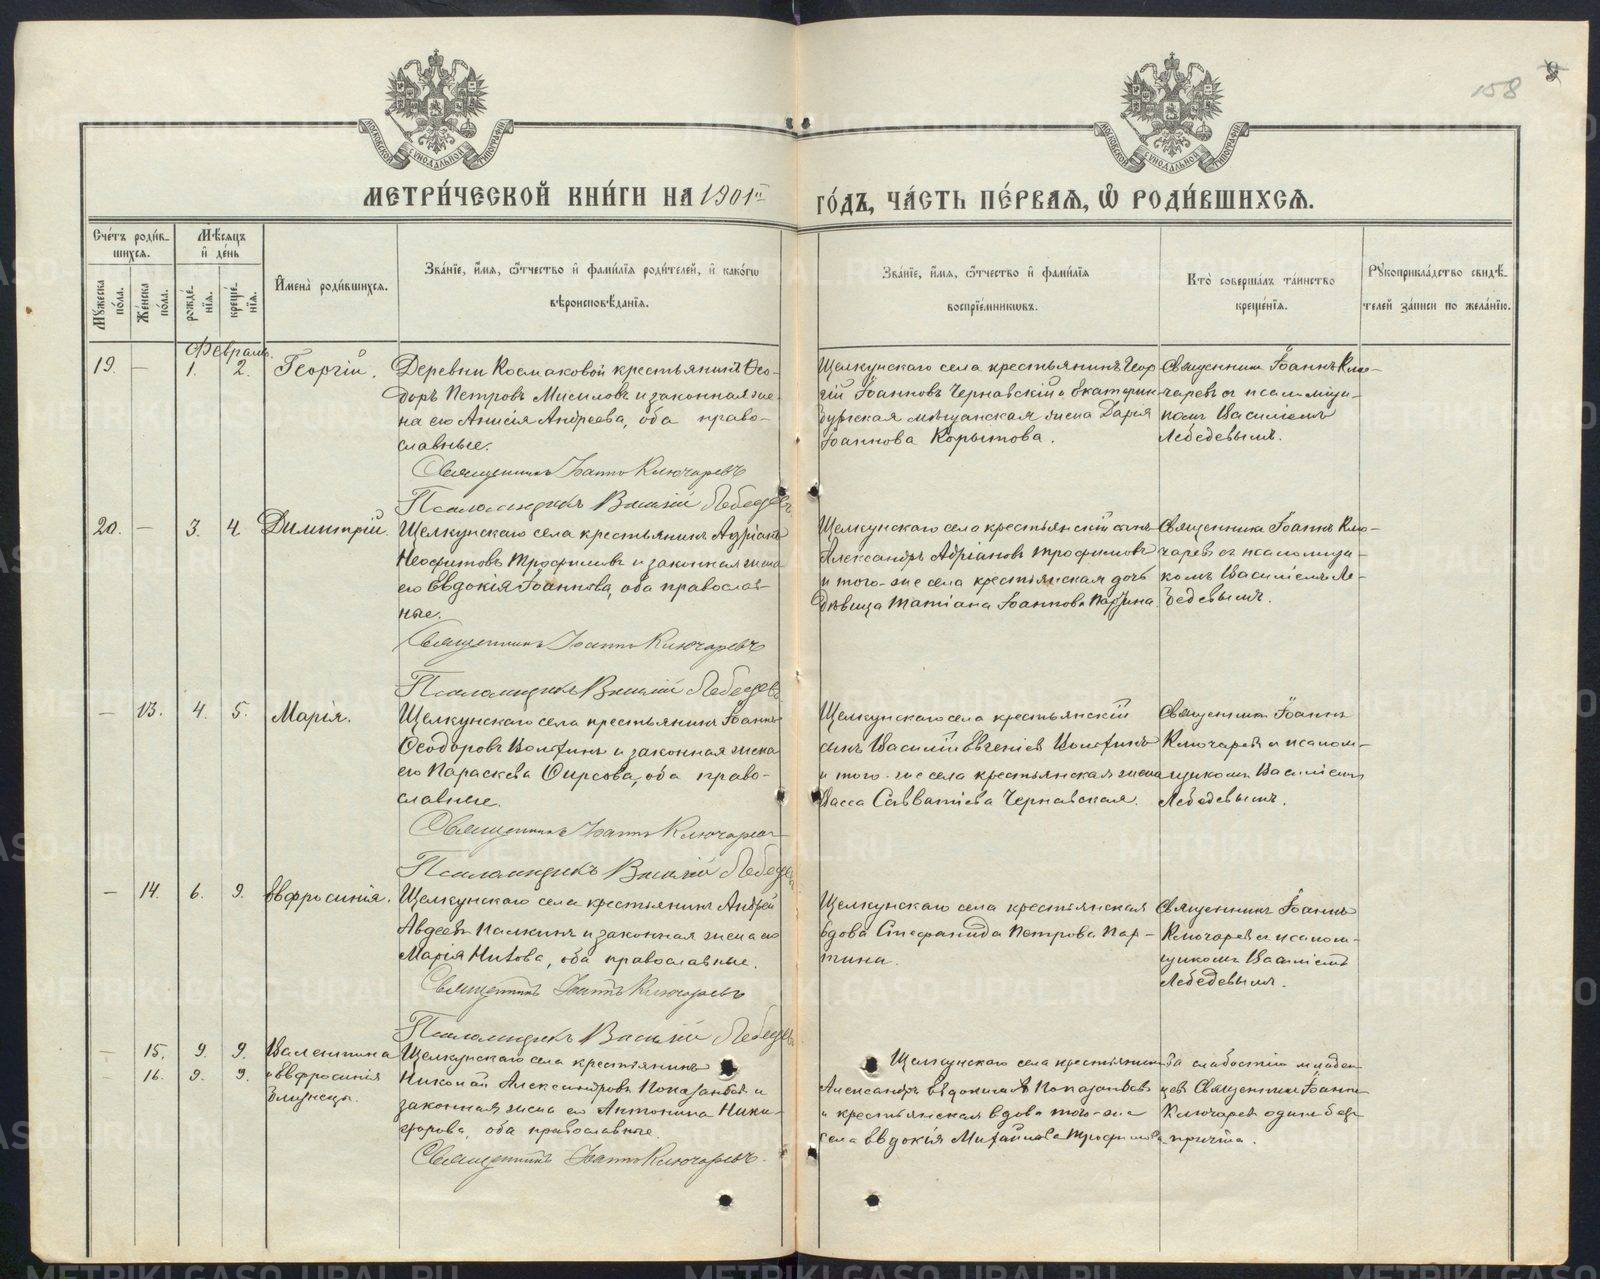 158
МОСКОВСКОЙ СѴНОДАЛЬНОЙ ТИПОГРАФІИ
МОСКОВСКОЙ СѴНОДАЛЬНОЙ ТИПОГРАФІИ
МЕТРИ́ЧЕСКОЙ КНИ́ГИ НА 1901й
ГО́ДЪ, ЧА́СТЬ ПЕ́РВАѦ, Ѽ РОДИ́ВШИХСѦ.
Сче́тъ роди́в-
шихся.
Мѣ́сяцъ
и҆ де́нь
Мꙋ́жеска по́ла.
Же́нска по́ла.
рожде́-
нїѧ.
креще́-
нїѧ.
И҆мена̀ роди́вшихся.
Зва́нїе, и҆́мѧ, ѻ҆́тчество и҆ фами́лїѧ роди́телей, и҆ како́гѡ
вѣроисповѣ́данїѧ.
Зва́нїе, и҆́мѧ, ѻ҆́тчество и҆ фами́лїѧ
воспрїе́мникѡвъ.
Кто̀ соверша́лъ та́инство
креще́нїѧ.
Рꙋкоприкла́дство свидѣ́-
телей за́писи по жела́нїю.
Февраль.
19. — 1. 2. Георгій.
Деревни Космаковой крестьянинъ Ѳео-
доръ Петровъ Мисиловъ и законная же-
на его Анисія Андреева, оба право-
славные.
Священникъ Іоаннъ Ключаревъ
Псаломщикъ Василій Лебедевъ
Щелкунскаго села крестьянинъ Геор-
гій Іоанновъ Чернавскій и Екатерин-
бургская мѣщанская жена Дарія
Іоаннова Корытова.
Священникъ Іоаннъ Клю-
чаревъ с псаломщи-
комъ Василіемъ
Лебедевымъ.
20. — 3. 4. Димитрій.
Щелкунскаго села крестьянинъ Адріанъ
Неофитовъ Трофимовъ и законная жена
его Евдокія Іоаннова, оба православ-
ные.
Священникъ Іоаннъ Ключаревъ
Псаломщикъ Василій Лебедевъ
Щелкунскаго села крестьянскій сынъ
Александръ Адріановъ Трофимовъ
и того-же села крестьянская дочь
дѣвица Татіана Іоаннова Паргина
Священникъ Іоаннъ Клю-
чаревъ с псаломщи-
комъ Василіемъ Ле-
бедевымъ.
— 13. 4. 5. Марія.
Щелкунскаго села крестьянинъ Іоаннъ
Ѳеодоровъ Колотинъ и законная жена
его Параскева Ѳирсова, оба право-
славные.
Священникъ Іоаннъ Ключаревъ
Псаломщикъ Василій Лебедевъ
Щелкунскаго села крестьянскій
сынъ Василій Евгеніевъ
и того-же села крестьянская жена
Васса Савватіева Чернавская.
Священникъ Іоаннъ
Ключаревъ с псалом-
щикомъ Василіемъ
Лебедевымъ.
— 14. 6. 9. Евфросинія.
Щелкунскаго села крестьянинъ Андрей
Авдеевъ Палкинъ и законная жена его
Марія Титова, оба православные.
Священникъ Іоаннъ Ключаревъ
Псаломщикъ Василій Лебедевъ
Щелкунскаго села крестьянская
вдова Стефанида Петрова Пар-
гина.
Священникъ Іоаннъ
Ключаревъ с псалом-
щикомъ Василіемъ
Лебедевымъ.
— 15. 9. 9. Валентина
— 16. 9. 9. и Евфросинія
близнецы.
Щелкунскаго села крестьянинъ
Николай Александровъ Показаньевъ и
законная жена его Антонина Ники-
форова, оба православные.
Священникъ Іоаннъ Ключаревъ.
Щелкунскаго села крестьянинъ
Александръ Евдокимовъ Показаньевъ
и крестьянская вдова того-же
села Евдокія Михайлова Трофимова
За слабостію младен-
цевъ Священникъ Іоаннъ
Ключаревъ одинъ безъ
причта.
METRIKI.GASO-URAL.RU